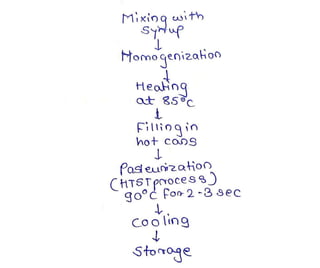 Mixing with
Syrup
↓
Homogenization
↓
Heating
at 85°C
↓
Filling in
hot cans
↓
Pasteurization
(HTST process)
90°C for 2-3 sec
↓
cooling
↓
Storage